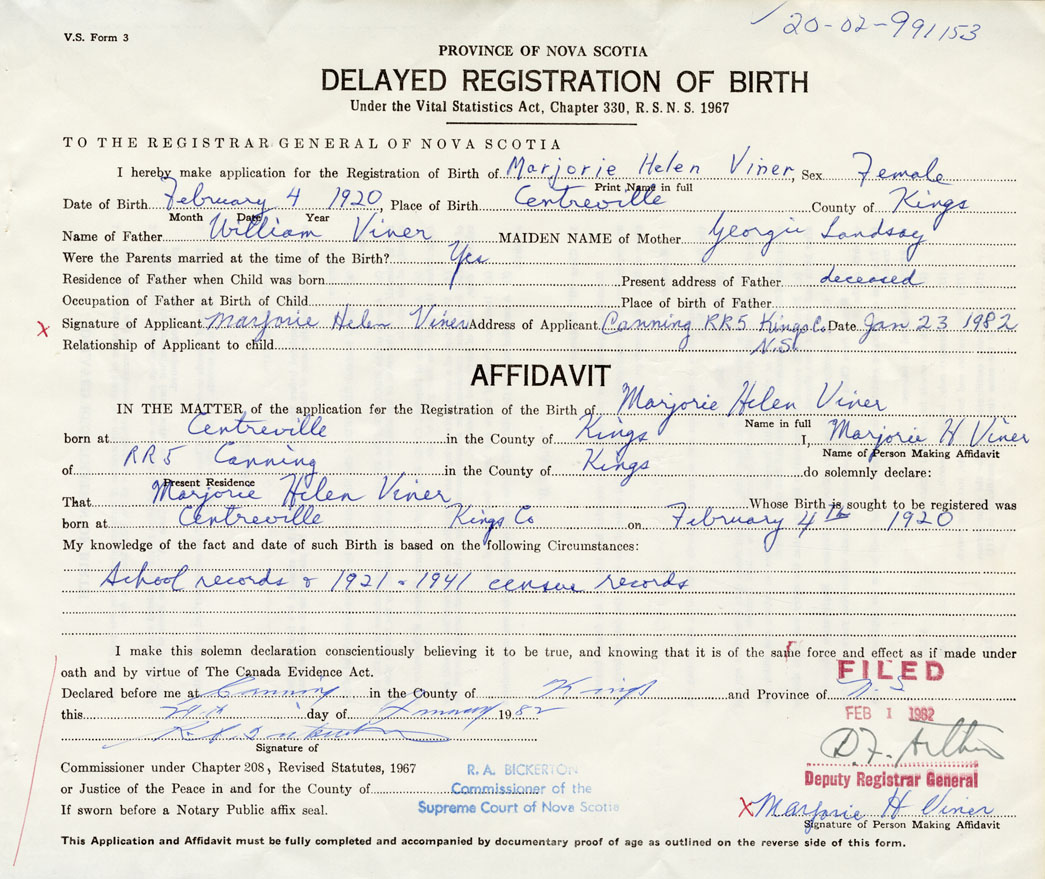 V.S. Form 3
20-02-991153
PROVINCE OF NOVA SCOTIA
DELAYED REGISTRATION OF BIRTH
Under the Vital Statistics Act, Chapter 330, R.S.N.S. 1967
TO THE REGISTRAR GENERAL OF NOVA SCOTIA
I hereby make application for the Registration of Birth of Marjorie Helen Viner, Sex Female
Print Name in full
Date of Birth February 4 1920, Place of Birth Centreville County of Kings
Month Date Year
Name of Father William Viner MAIDEN NAME of Mother Georgie Landsay
Were the Parents married at the time of the Birth? Yes
Residence of Father when Child was born Present address of Father deceased
Occupation of Father at Birth of Child Place of birth of Father
X Signature of Applicant Marjorie Helen Viner Address of Applicant Canning RR5 Kings Co. Date Jan 23 1982
Relationship of Applicant to child N.S.
AFFIDAVIT
IN THE MATTER of the application for the Registration of the Birth of Marjorie Helen Viner
Name in full
born at Centreville in the County of Kings I, Marjorie H Viner
Name of Person Making Affidavit
of RR5 Canning in the County of Kings do solemnly declare:
Present Residence
That Marjorie Helen Viner Whose Birth is sought to be registered was
born at Centreville Kings Co on February 4th 1920
My knowledge of the fact and date of such Birth is based on the following Circumstances:
School records & 1921 - 1941 census records
I make this solemn declaration conscientiously believing it to be true, and knowing that it is of the same force and effect as if made under
oath and by virtue of The Canada Evidence Act.
FILED
Declared before me at Canning in the County of Kings and Province of N.S
this day of January 1982
FEB 1 1982
Signature of
D.F.
Commissioner under Chapter 208, Revised Statutes, 1967
R. A. BICKERTON
Deputy Registrar General
or Justice of the Peace in and for the County of
Commissioner of the
If sworn before a Notary Public affix seal.
Supreme Court of Nova Scotia
X Marjorie H Viner
Signature of Person Making Affidavit
This Application and Affidavit must be fully completed and accompanied by documentary proof of age as outlined on the reverse side of this form.